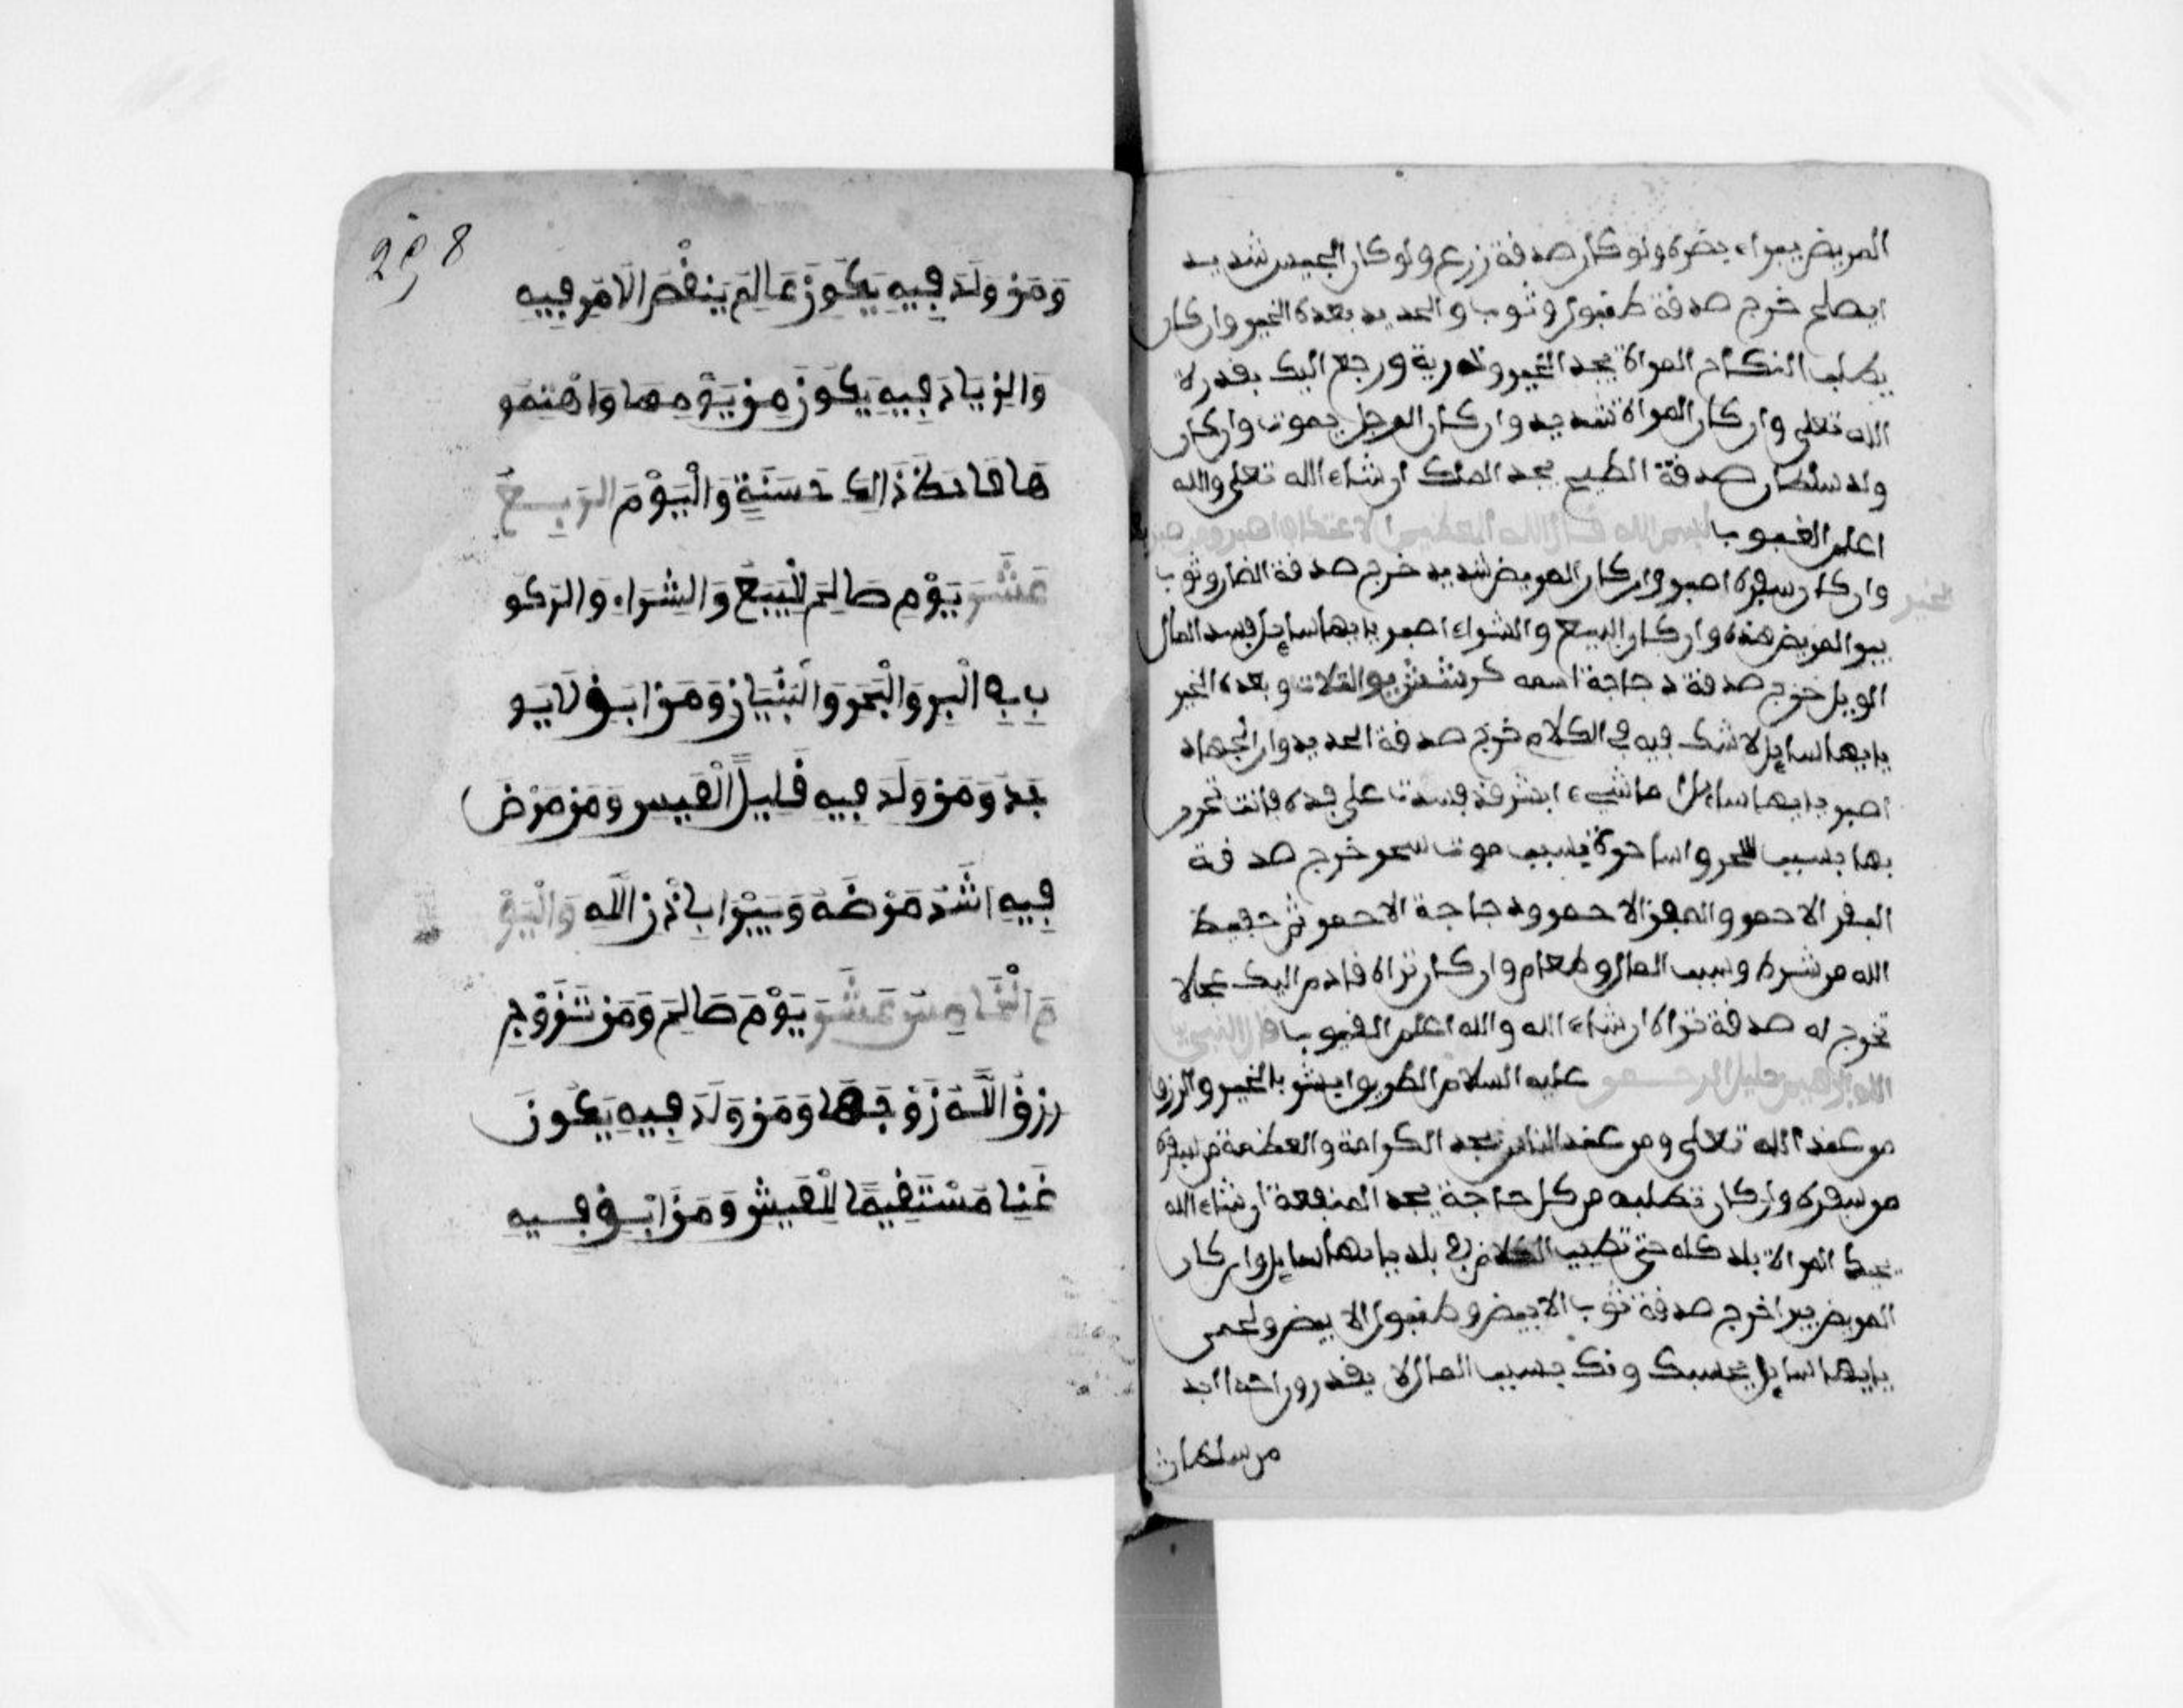 المريض يبراء بضره ولو كان صدقة زرع ولو كان الجيس شديد
ايصلح خرج صدقة طنبور وثوب والحديد بعده الخير وان كان
يطلب النكاح المراة يجد الخير وذرية ورجع اليك بقدر لا
الله تعلى وان كان المراة شديد وان كان الرجل يموت وان كان
ولد سلطان صدقة الطبح يجد الملك ان شاء الله تعلى والله
اعلم الغيوب بسم الله قال الله العظيم
وان كان سفره اصبر وان كان المريض شديد خرج صدقة الضان وثوب
يبر المريض هذه وان كان البيع والشراء اصبر يايها سايل فسد المال
الويل خرج صدقة دجاجة اسمه وبعده الخير
يايها سايل لا شك فيه في الكلام خرج صدقة الحديد وان الجهاد
اصبر يايها سايل ما شيء ابشر قد فسدت على قده فانت تحرم
بها بسبب سحر واساحرة بسبب موت سحر خرج صدقة
البقر الاحمر والمعز الاحمر ودجاجة الاحمر ثم حفيظ
الله من شره وسبب المال وطعام وان كان تراه قادم اليك عجلا
تخرج له صدقة تراه ان شاء الله والله اعلم الغيوب قال النبي
الله ابرهيم خليل الرحمن عليه السلام ابشر بالخير والرزق
من عند الله تعلى ومن عند الناس تجد الكرامة والعظمة من سفره
من سفره وان كان تطلبه من كل حاجة يجد المنفعة ان شاء الله
المراة بلد كله حتى تطيب الكلام في بلد يايها سايل وان كان
المريض يبرا خرج صدقة ثوب الابيض وطنبور الابيض ولحمر
يايها سايل يحسبك ونك بسبب المال لا يقدرون احد ابد
من سلطان
298
وَمَن وَلَدَ فِيهِ يَكُونَ عَالِمَ يَنقْصَ الَامَرِ فِيهِ
وَالزِيَادَ فِيهِ يَكُونَ مِن يَوْمِهَا وَاهْتِمَو
هَاهَا كَذَالِكَ حَسَنَةٍ وَالْيَوْمَ الرَبِيعَ
عَشَرَ يَوْمِ صَالِحَ لِلْبَيَعَ وَالشِرَاءِ وَالرَكو
بِ فِي الْبِرِ وَالْبَحَرِ وَالْبُنْيَانِ وَمَن ابَقَ لَايو
جَدَ وَمَن وَلَدَ فِيهِ قَلِيلً الْعَيِس وَمَن مَرَضَ
فِيهِ اشَدَ مَرَضَهُ وَيَبْرَا بِاذْنِ اللَّهِ وَالْيَوْ
مَ الْخَامِسَ عَشَرَ يَوْمَ صَالِحَ وَمَن تَزَوَّجِ
رِزِقُ اللَّهَ زَوْجَهَا وَمَن وَلَدَ فِيهِ يَكُونَ
غَنِيا مَسْتَقِيمًا لِلْعَيِش وَمَن ابَقَ فِيهِ